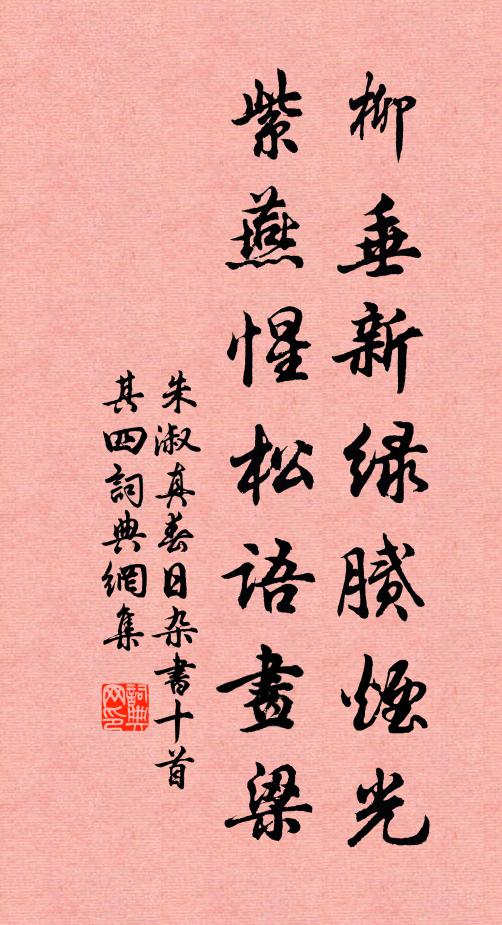 柳垂新绿腻烟光
紫燕惺松语画梁
朱淑真春日杂书十首
其四詞典網集
詞典网印